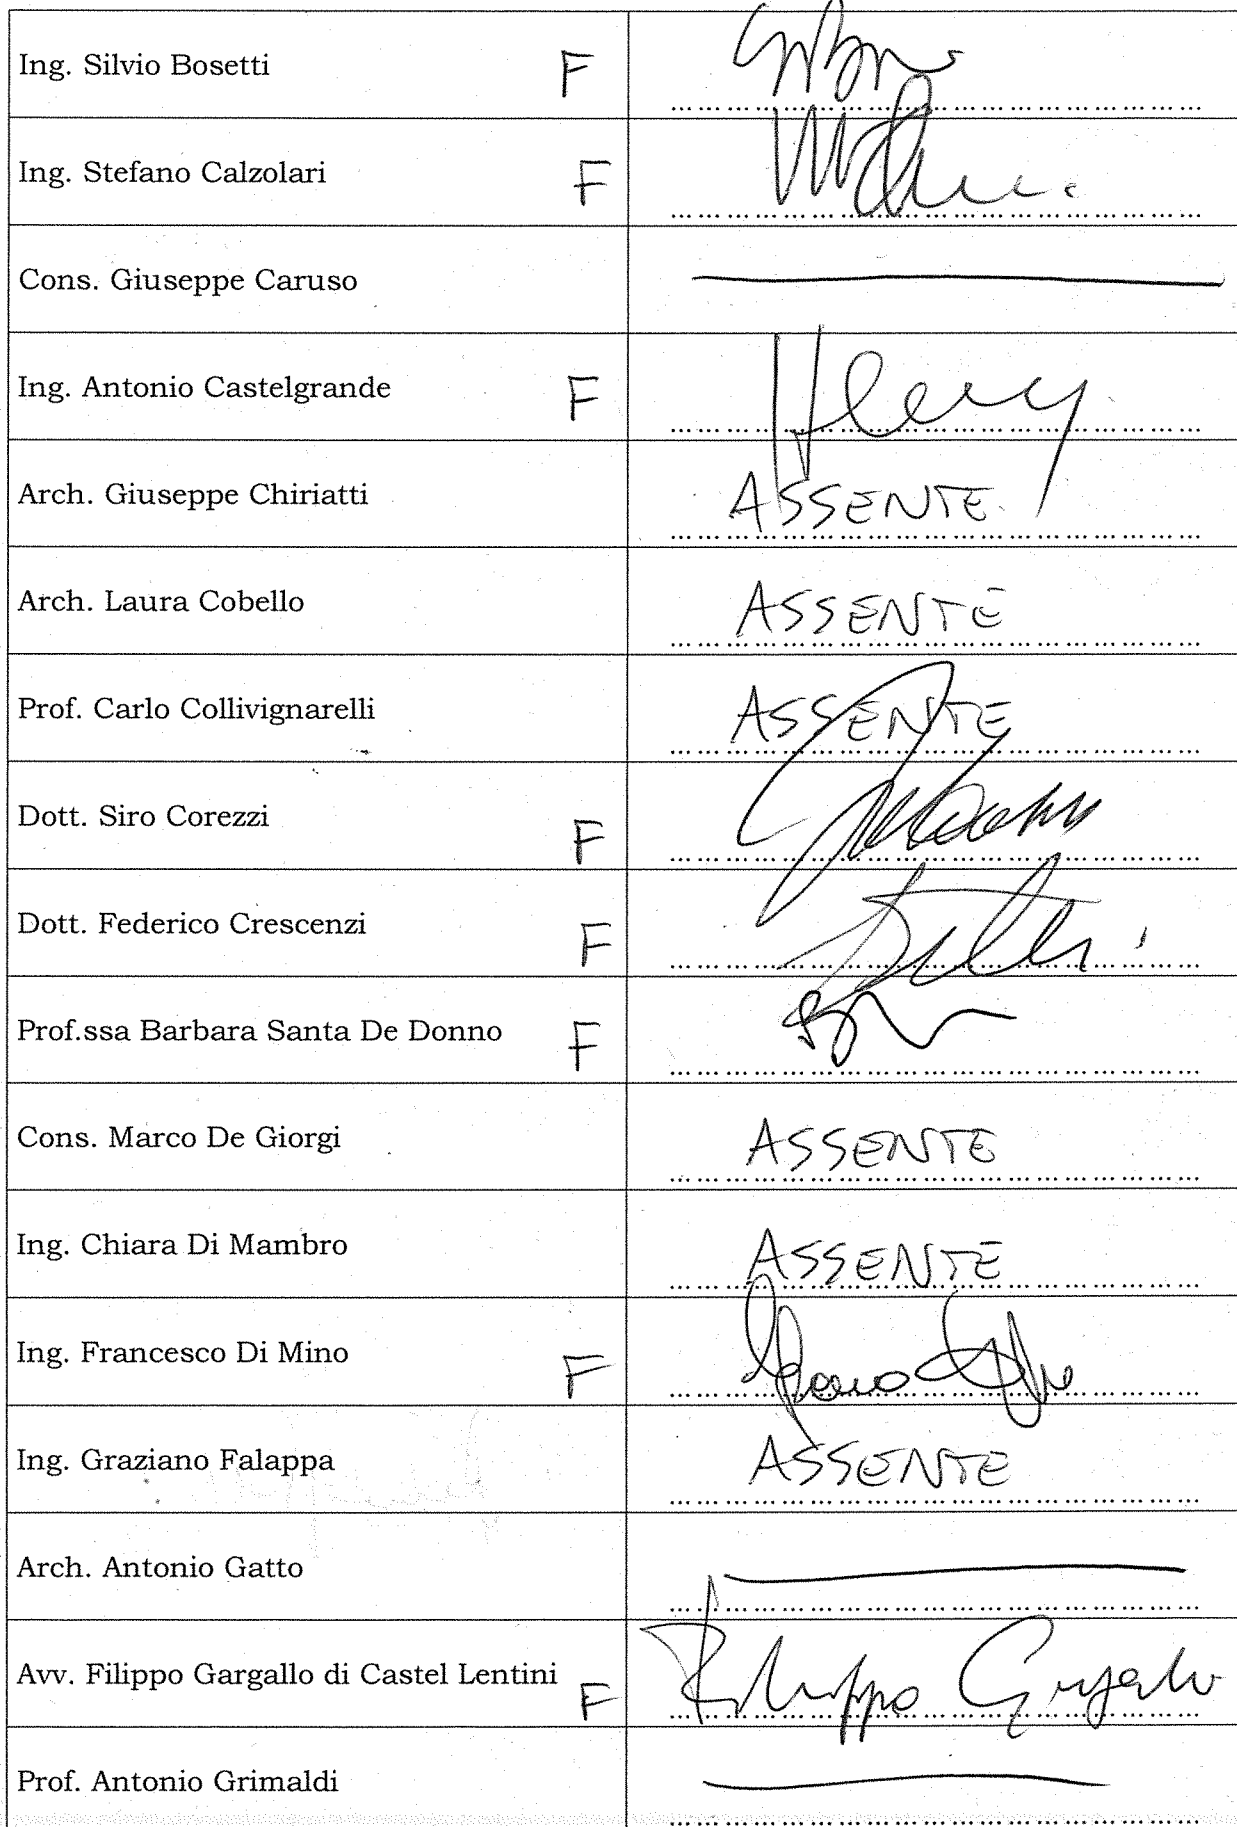 Ing. Silvio Bosetti F
Ing. Stefano Calzolari F
Cons. Giuseppe Caruso
Ing. Antonio Castelgrande F
Arch. Giuseppe Chiriatti ASSENTE
Arch. Laura Cobello ASSENTE
Prof. Carlo Collivignarelli ASSENTE
Dott. Siro Corezzi F
Dott. Federico Crescenzi F
Prof.ssa Barbara Santa De Donno F
Cons. Marco De Giorgi ASSENTE
Ing. Chiara Di Mambro ASSENTE
Ing. Francesco Di Mino F
Ing. Graziano Falappa ASSENTE
Arch. Antonio Gatto
Avv. Filippo Gargallo di Castel Lentini F Filippo Gargallo
Prof. Antonio Grimaldi